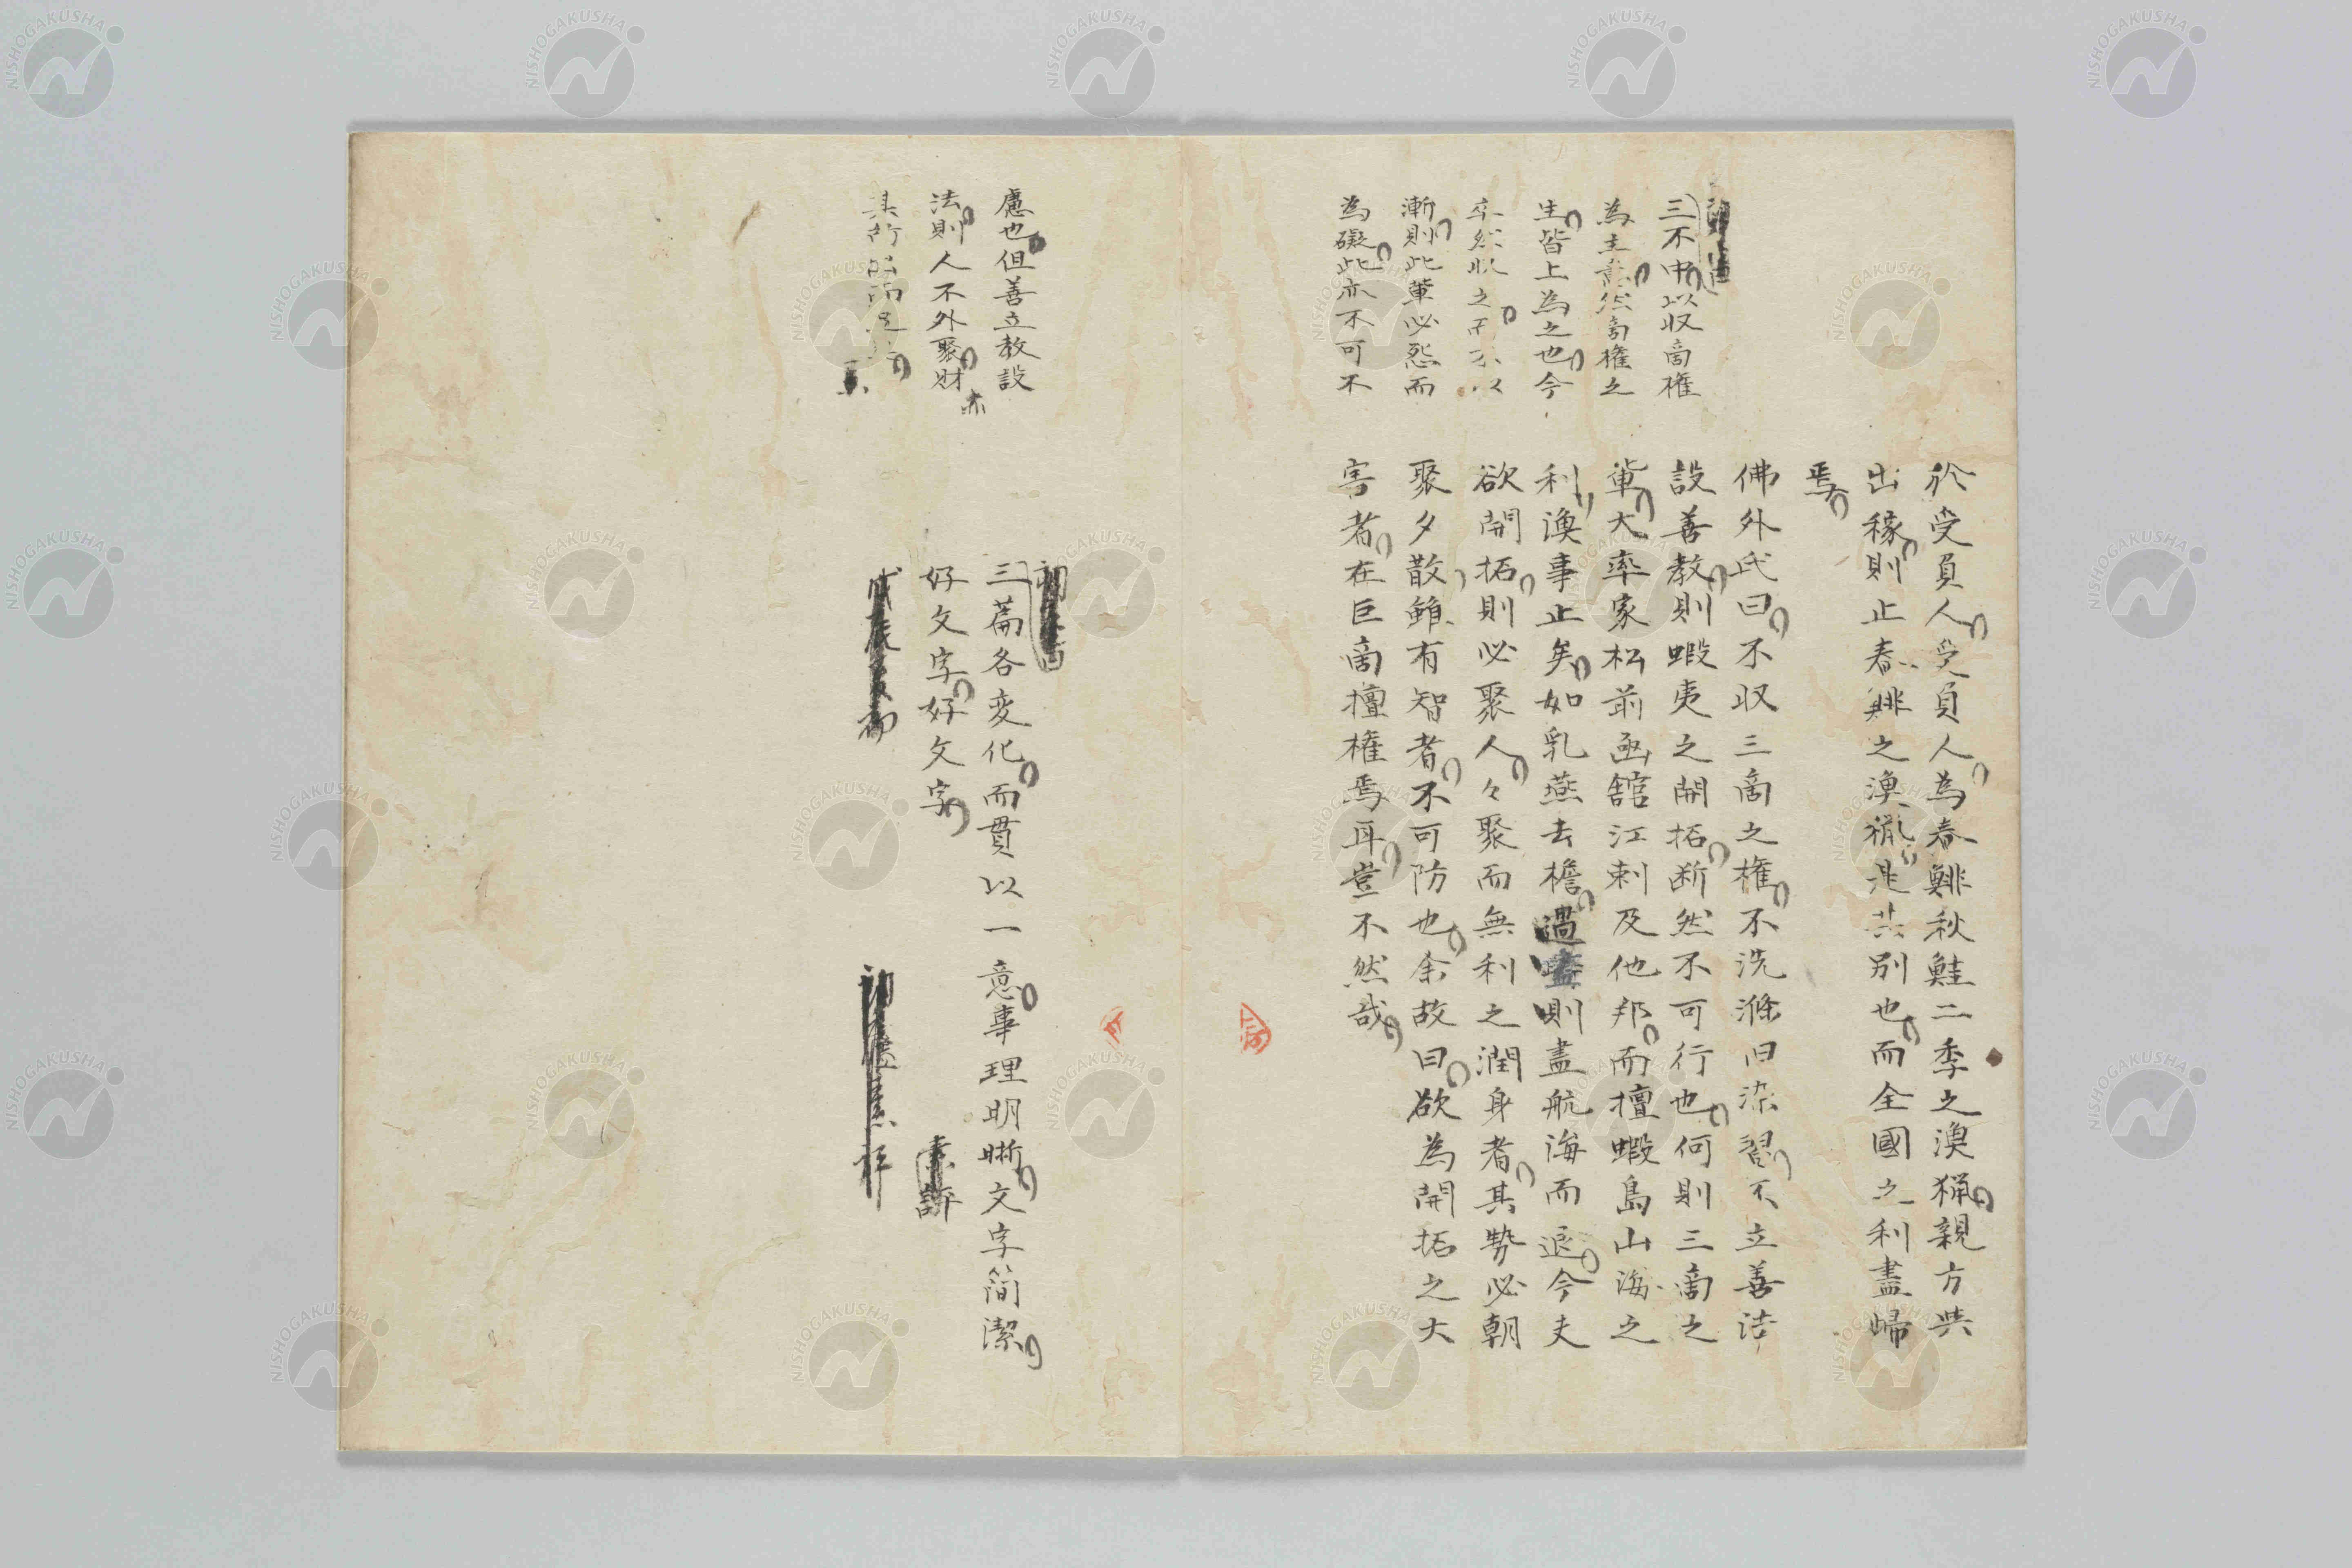 於受負人受負人為春鯡秋鮭二季之漁猟親方共
出稼則止春鯡之漁猟是其別也而全國之利盡帰
焉
佛外氏曰不収三啇之権不洗滌旧染習不立善法
設善教則蝦夷之開拓断然不可行也何則三啇之
軰大率家松前函舘江刺及他邦而擅蝦島山海之
利漁事止矣如乳燕去檐過則盡航海而退今夫
欲開拓則必聚人々聚而無利之潤身者其勢必朝
聚夕散雖有智者不可防也余故曰欲為開拓之大
害者在巨啇擅権焉耳豈不然哉
三不中以収啇権
為主意然啇権之
生皆上為之也今
卒然収之而不以
漸則此軰必怨而
為礙此亦不可不
慮也但善立教設
法則人不外聚財
亦
三篇各変化而貫以一意事理明晰文字簡潔
好文字好文字
評
NISHOGAKUSHA